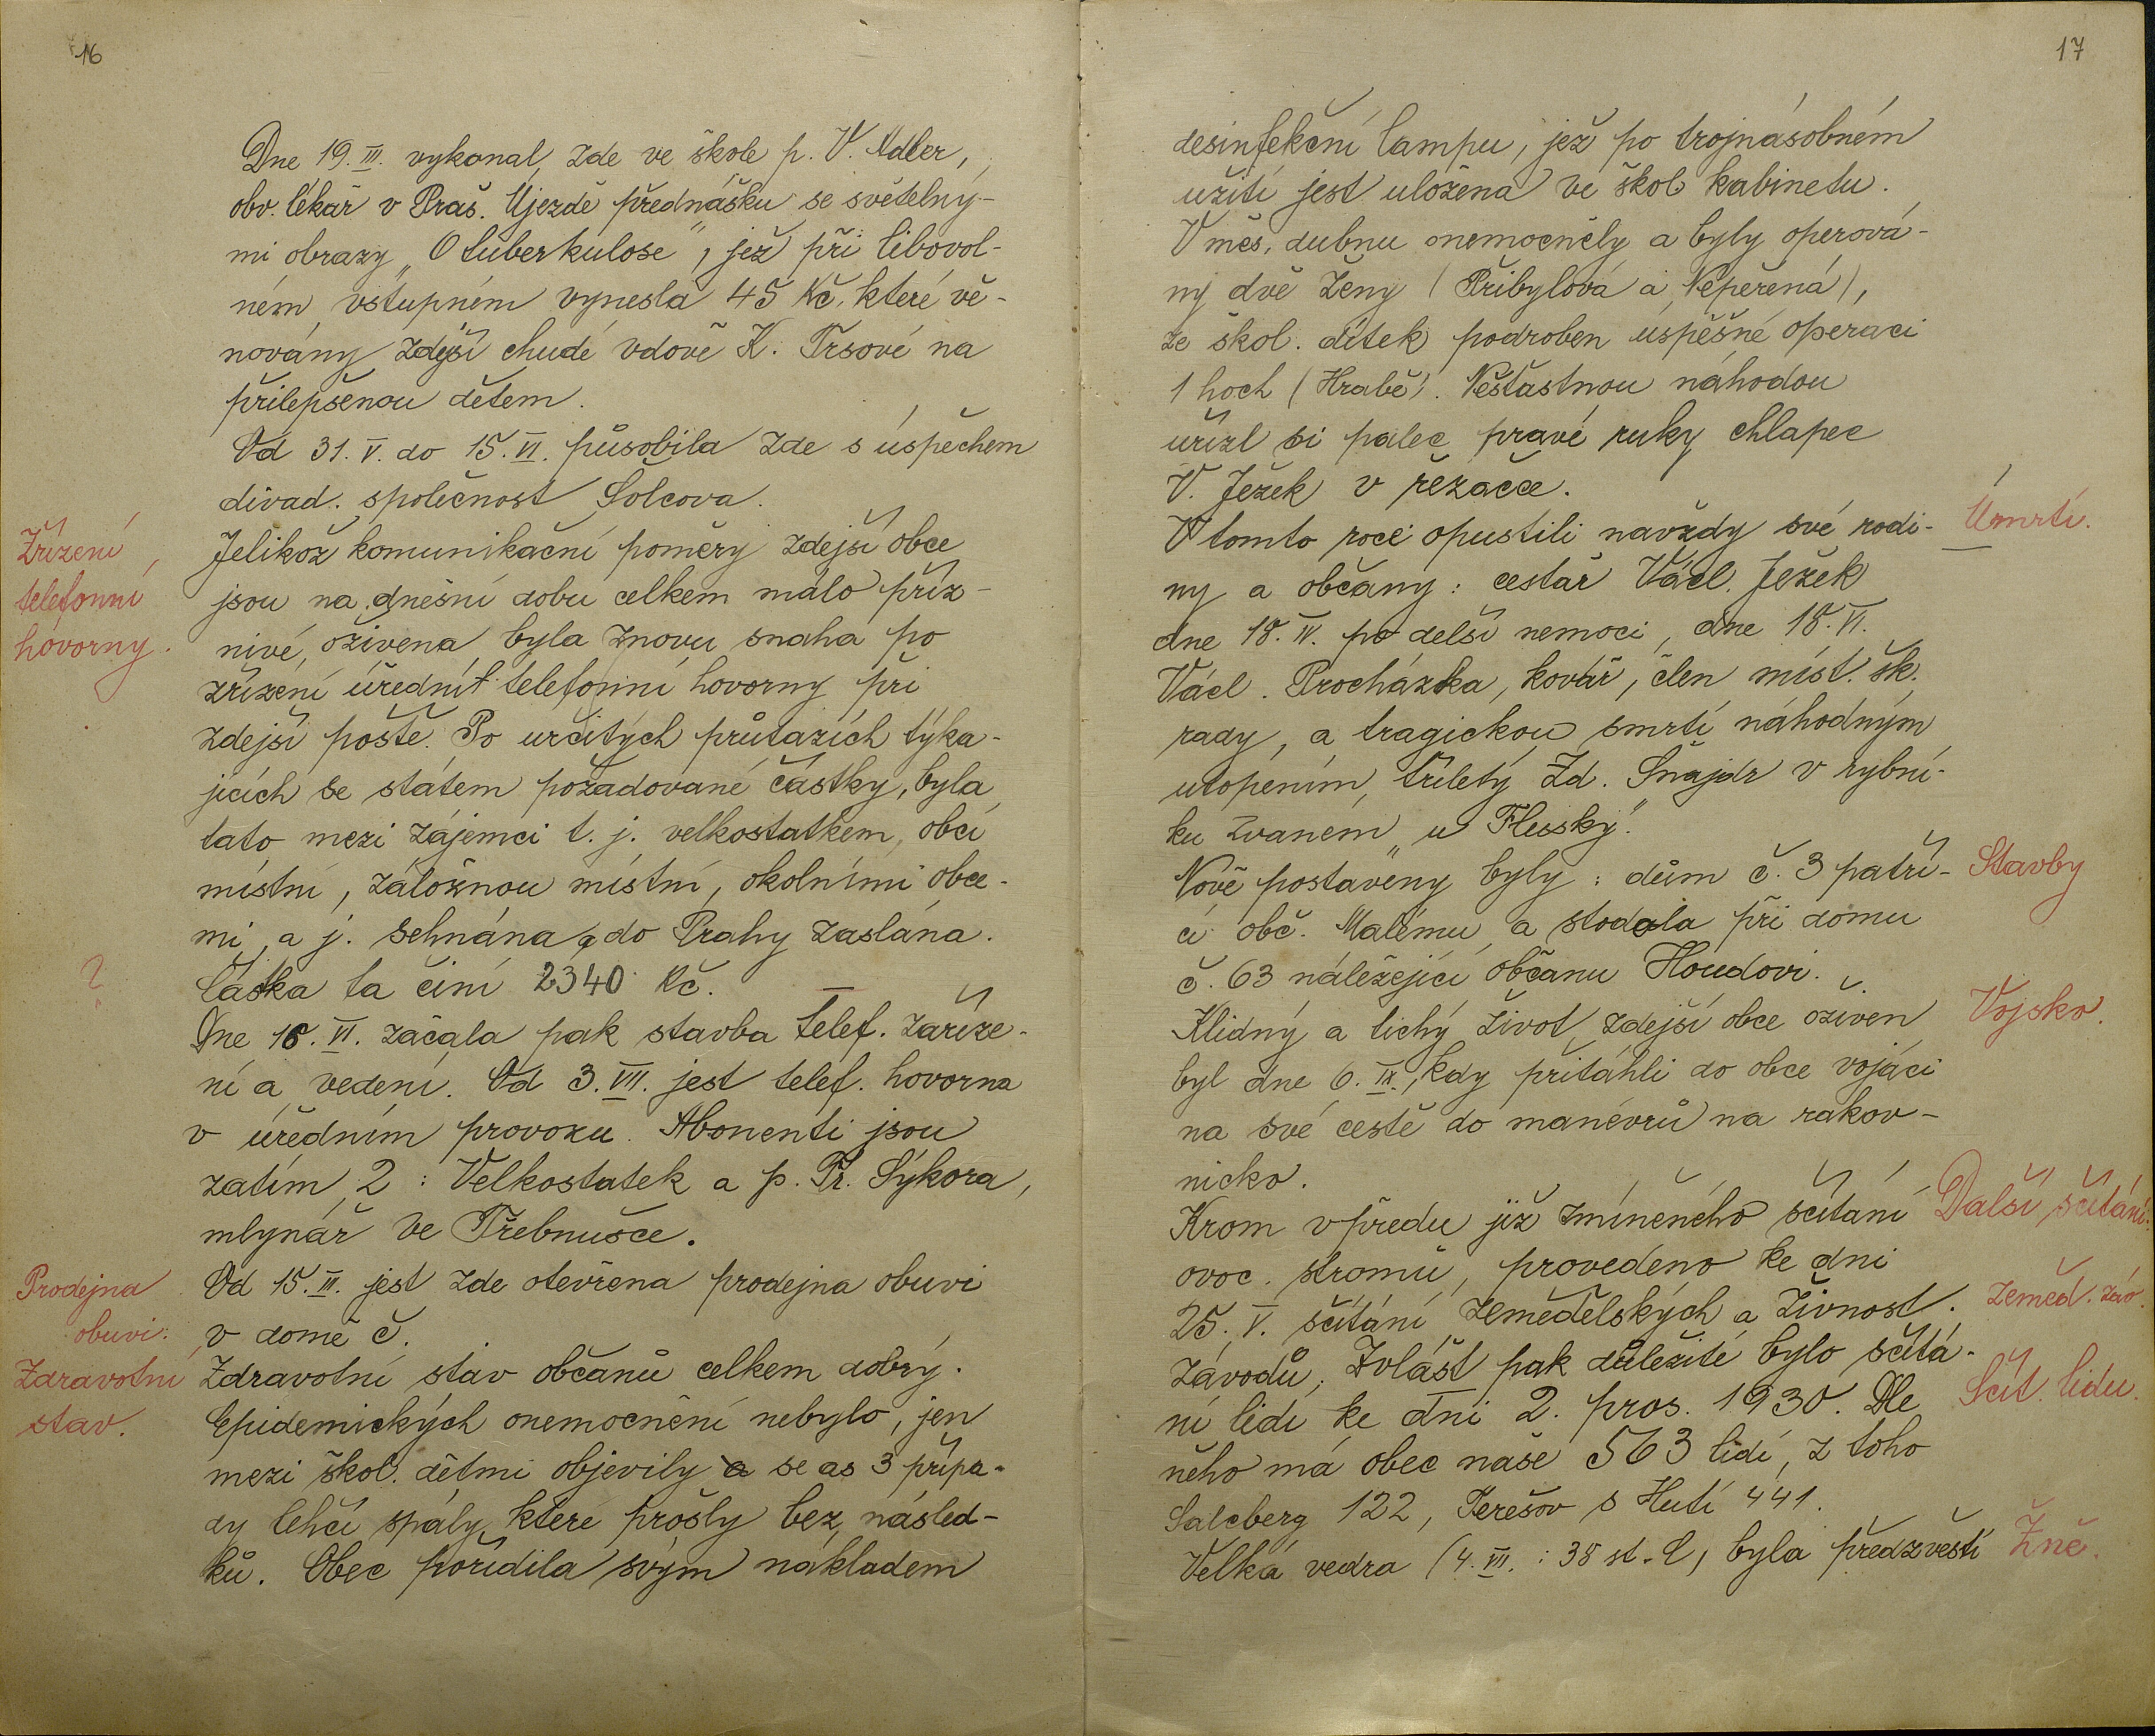 16
Dne 19. III. vykonal zde ve škole p. V. Adler,
obv. lékař v Praš. Újezdě přednášku se světelný-
mi obrazy „O tuberkulose", jež při libovol-
ném vstupném vynesla 45 Kč, které vě-
novány zdejší chudé vdově K. Trsové na
přilepšenou dětem.
Od 31. V. do 15. VI. působila zde s úspěchem
divad. společnost Šolcova.
Zřízení
telefonní
hovorny.
Jelikož komunikační poměry zdejší obce
jsou na dnešní dobu celkem málo příz-
nivé, oživena byla znovu snaha po
zřízení úřední telefonní hovorny při
zdejší poště. Po určitých průtazích týka-
jících se státem požadované částky, byla
tato mezi zájemci t. j. velkostatkem, obcí
místní, záložnou místní, okolními obce-
mi, a j. sehnána a do Prahy zaslána.
?
Částka ta činí 2340 Kč.
Dne 16. VI. začala pak stavba telef. zaříze-
ní a vedení. Od 3. VIII. jest telef. hovorna
v úředním provozu. Abonenti jsou
zatím 2: Velkostatek a p. Fr. Sýkora,
mlynář ve Třebnušce.
Prodejna
obuvi:
Od 15. III. jest zde otevřena prodejna obuvi
v domě č.
Zdravotní
stav.
Zdravotní stav občanů celkem dobrý.
Epidemických onemocnění nebylo, jen
mezi škol. dětmi objevily se as 3 přípa-
dy lehčí spály, které prošly bez násled-
ků. Obec pořídila svým nákladem
17
desinfekční lampu, jež po trojnásobném
užití jest uložena ve škol. kabinetu.
V měs. dubnu onemocněly a byly operová-
ny dvě ženy (Přibylová a Nepěřená),
ze škol. dítek podroben úspěšné operaci
1 hoch (Hrabě). Nešťastnou náhodou
uřízl si palec pravé ruky chlapec
V. Ježek v řezačce.
V tomto roce opustili navždy své rodi-
Úmrtí.
ny a občany: cestář Václ. Ježek
dne 18. IV. po delší nemoci, dne 18. VI.
Václ. Procházka, kovář, člen míst. šk.
rady, a tragickou smrtí náhodným
utopením, tříletý Zd. Šnajdr v rybní-
ku zvaném „u Flusský".
Nově postaveny byly: dům č. 3 patří-
Stavby
cí obč. Malému a stodola při domu
č. 63 náležející občanu Houdovi.
Klidný a tichý život zdejší obce oživen
Vojsko.
byl dne 6. IX., kdy přitáhli do obce vojáci
na své cestě do manévrů na rakov-
nicko.
Krom vpředu již zmíněného sčítání
Další sčítání:
ovoc. stromů, provedeno ke dni
25. V. sčítání zemědělských a živnost.
zeměd. záv.
závodů. Zvlášť pak důležité bylo sčítá-
ní lidí ke dni 2. pros. 1930. Dle
Sčít. lidu.
něho má obec naše 563 lidí, z toho
Salcberg 122, Terešov s Hutí 441.
Velká vedra (4. VII.: 38 st. C) byla předzvěstí
Žně.